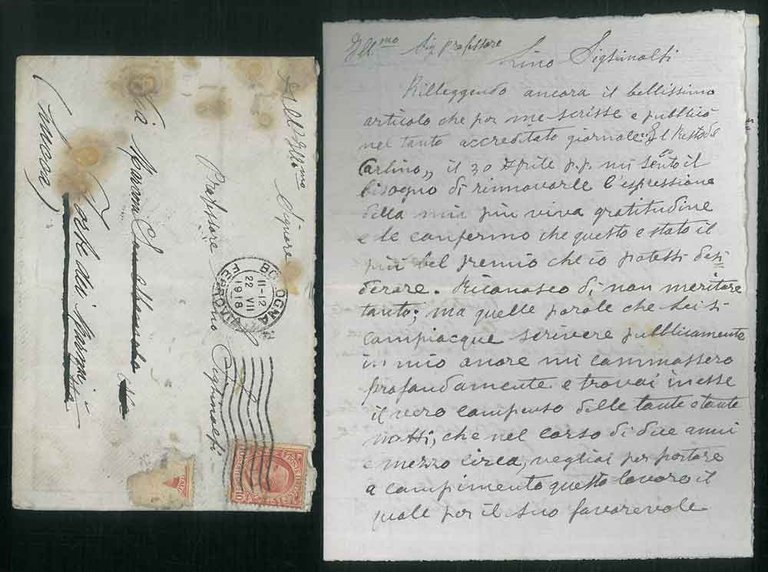 All'Ill.mo Signore
Professore Lino Sighinolfi
Via
Massa
BOLOGNA FERROVIA
11-12
22 II
1918
Ill.mo Sig. Professore
Lino Sighinolfi
Rilleggendo ancora il bellissimo
articolo che per me scrisse e pubblicò
nel tanto accreditato giornale "Il Resto del
Carlino„ il 30 Aprile p.p. mi sento il
bisogno di rinnovarle l'espressione
della mia più viva gratitudine
e le confermo che questo è stato il
più bel premio che io potessi desi
derare. Riconosco di non meritare
tanto; ma quelle parole che Lei si
compiacque scrivere pubblicamente
in mio onore mi commossero
profondamente e trovai in esse
il vero compenso delle tante e tante
notti, che nel corso di due anni
e mezzo circa, vegliai per portare
a compimento questo lavoro il
quale per il suo favorevole